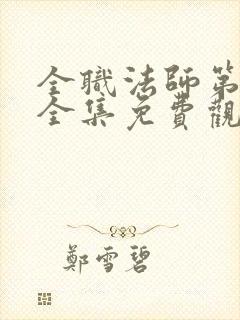 全職法師第
全集免費觀
鄭雪碧